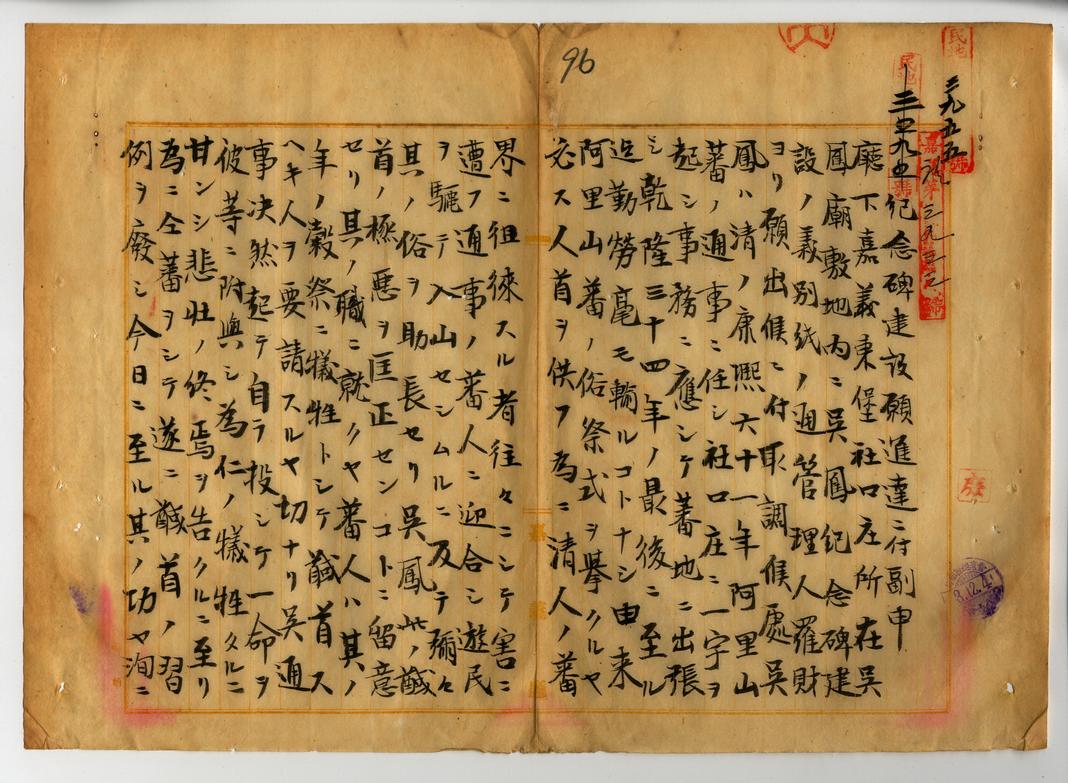 96
民地
民地
二九五五號
嘉
三九三三
紀念碑建設願進達ニ付副申
廳下嘉義東堡社口庄所在吳
鳳廟敷地内ニ吳鳳紀念碑建
設ノ義別紙ノ通管理人羅財
ヨリ願出候ニ付取調候處吳
鳳ハ清ノ康熙六十一年阿里山
蕃ノ通事ニ任シ社口庄ニ一宇ヲ
起シ事務ニ應シテ蕃地ニ出張
シ乾隆三十四年ノ最後ニ至ル
迄勤勞毫モ輸ルコトナシ由来
阿里山蕃ノ俗祭式ヲ擧クルヤ
必ス人首ヲ供フ為ニ清人ノ蕃
界ニ徂徠スル者往々ニシテ害ニ
遭フ通事ノ蕃人ニ迎合シ遊民
ヲ驅テ入山セシムルニ及テ彌々
其ノ俗ヲ助長セリ吳鳳此ノ馘
首ノ極惡ヲ匡正センコトニ留意
セリ其ノ職ニ就クヤ蕃人ハ其ノ
年ノ穀祭ニ犠牲トシテ馘首ス
ヘキ人ヲ要請スルヤ切ナリ吳通
事決然起テ自ラ投シテ一命ヲ
彼等ニ附與シ為仁ノ犠牲タルニ
甘ンシ悲壯ノ終焉ヲ告クルニ至リ
為ニ仝蕃ヲシテ遂ニ馘首ノ習
例ヲ廢シ今日ニ至ル其ノ功ヤ洵ニ